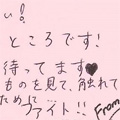 い!
ところです!
待ってます♥
ものを見て、触れて
ために…
ファイト!!
From